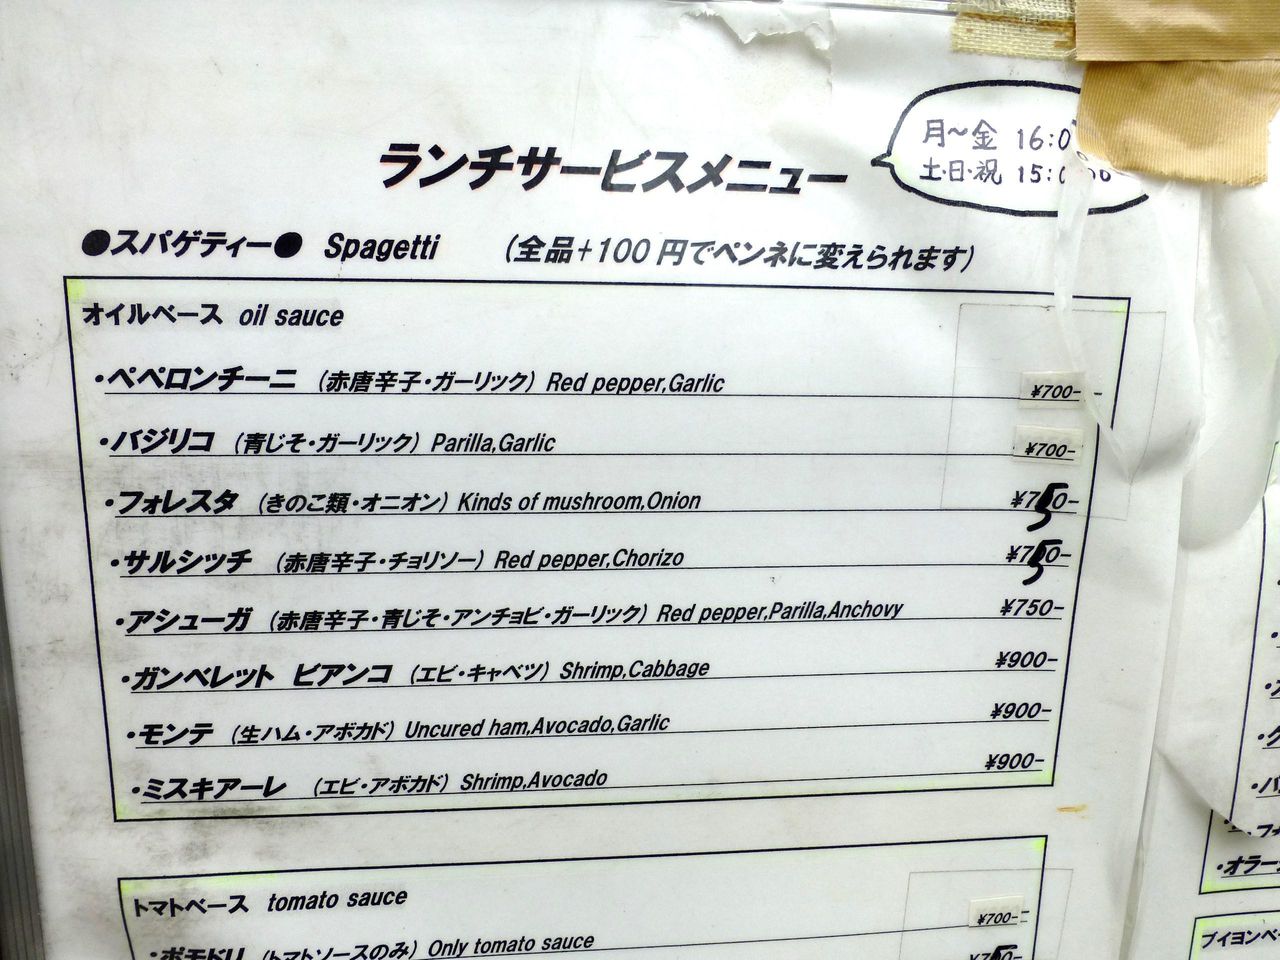 ランチサービスメニュー
月〜金 16:0
土・日・祝 15:
●スパゲティー● Spagetti (全品+100円でペンネに変えられます)
オイルベース oil sauce
・ペペロンチーニ (赤唐辛子・ガーリック) Red pepper,Garlic ¥700-
・バジリコ (青じそ・ガーリック) Parilla,Garlic ¥700-
・フォレスタ (きのこ類・オニオン) Kinds of mushroom,Onion ¥750-
・サルシッチ (赤唐辛子・チョリソー) Red pepper,Chorizo ¥750-
・アシューガ (赤唐辛子・青じそ・アンチョビ・ガーリック) Red pepper,Parilla,Anchovy ¥750-
・ガンベレット ビアンコ (エビ・キャベツ) Shrimp,Cabbage ¥900-
・モンテ (生ハム・アボカド) Uncured ham,Avocado,Garlic ¥900-
・ミスキアーレ (エビ・アボカド) Shrimp,Avocado ¥900-
トマトベース tomato sauce
¥700-
・ポモドリ (トマトソースのみ) Only tomato sauce
・オラー
ブイヨンベ